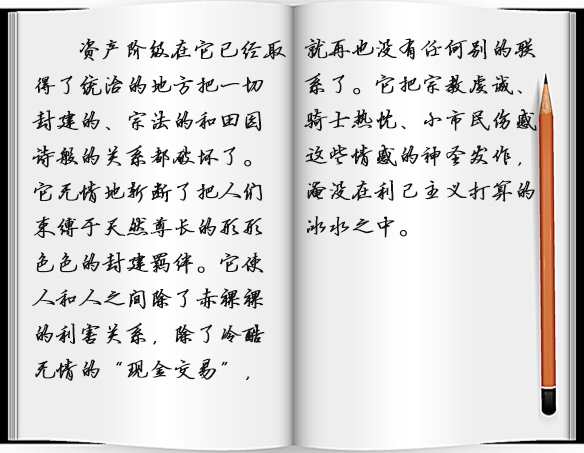 资产阶级在它已经取
得了统治的地方把一切
封建的、宗法的和田园
诗般的关系都破坏了。
它无情地斩断了把人们
束缚于天然尊长的形形
色色的封建羁绊。它使
人和人之间除了赤裸裸
的利害关系，除了冷酷
无情的“现金交易”，
就再也没有任何别的联
系了。它把宗教虔诚、
骑士热忱、小市民伤感
这些情感的神圣发作，
淹没在利己主义打算的
冰水之中。